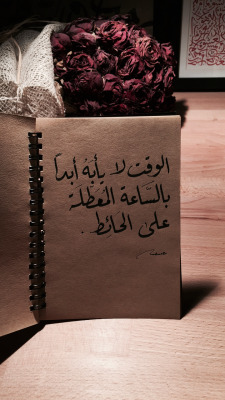 الوقت لا يأبه أبداً
بالسّاعة المُعطّلة
على الحائط .